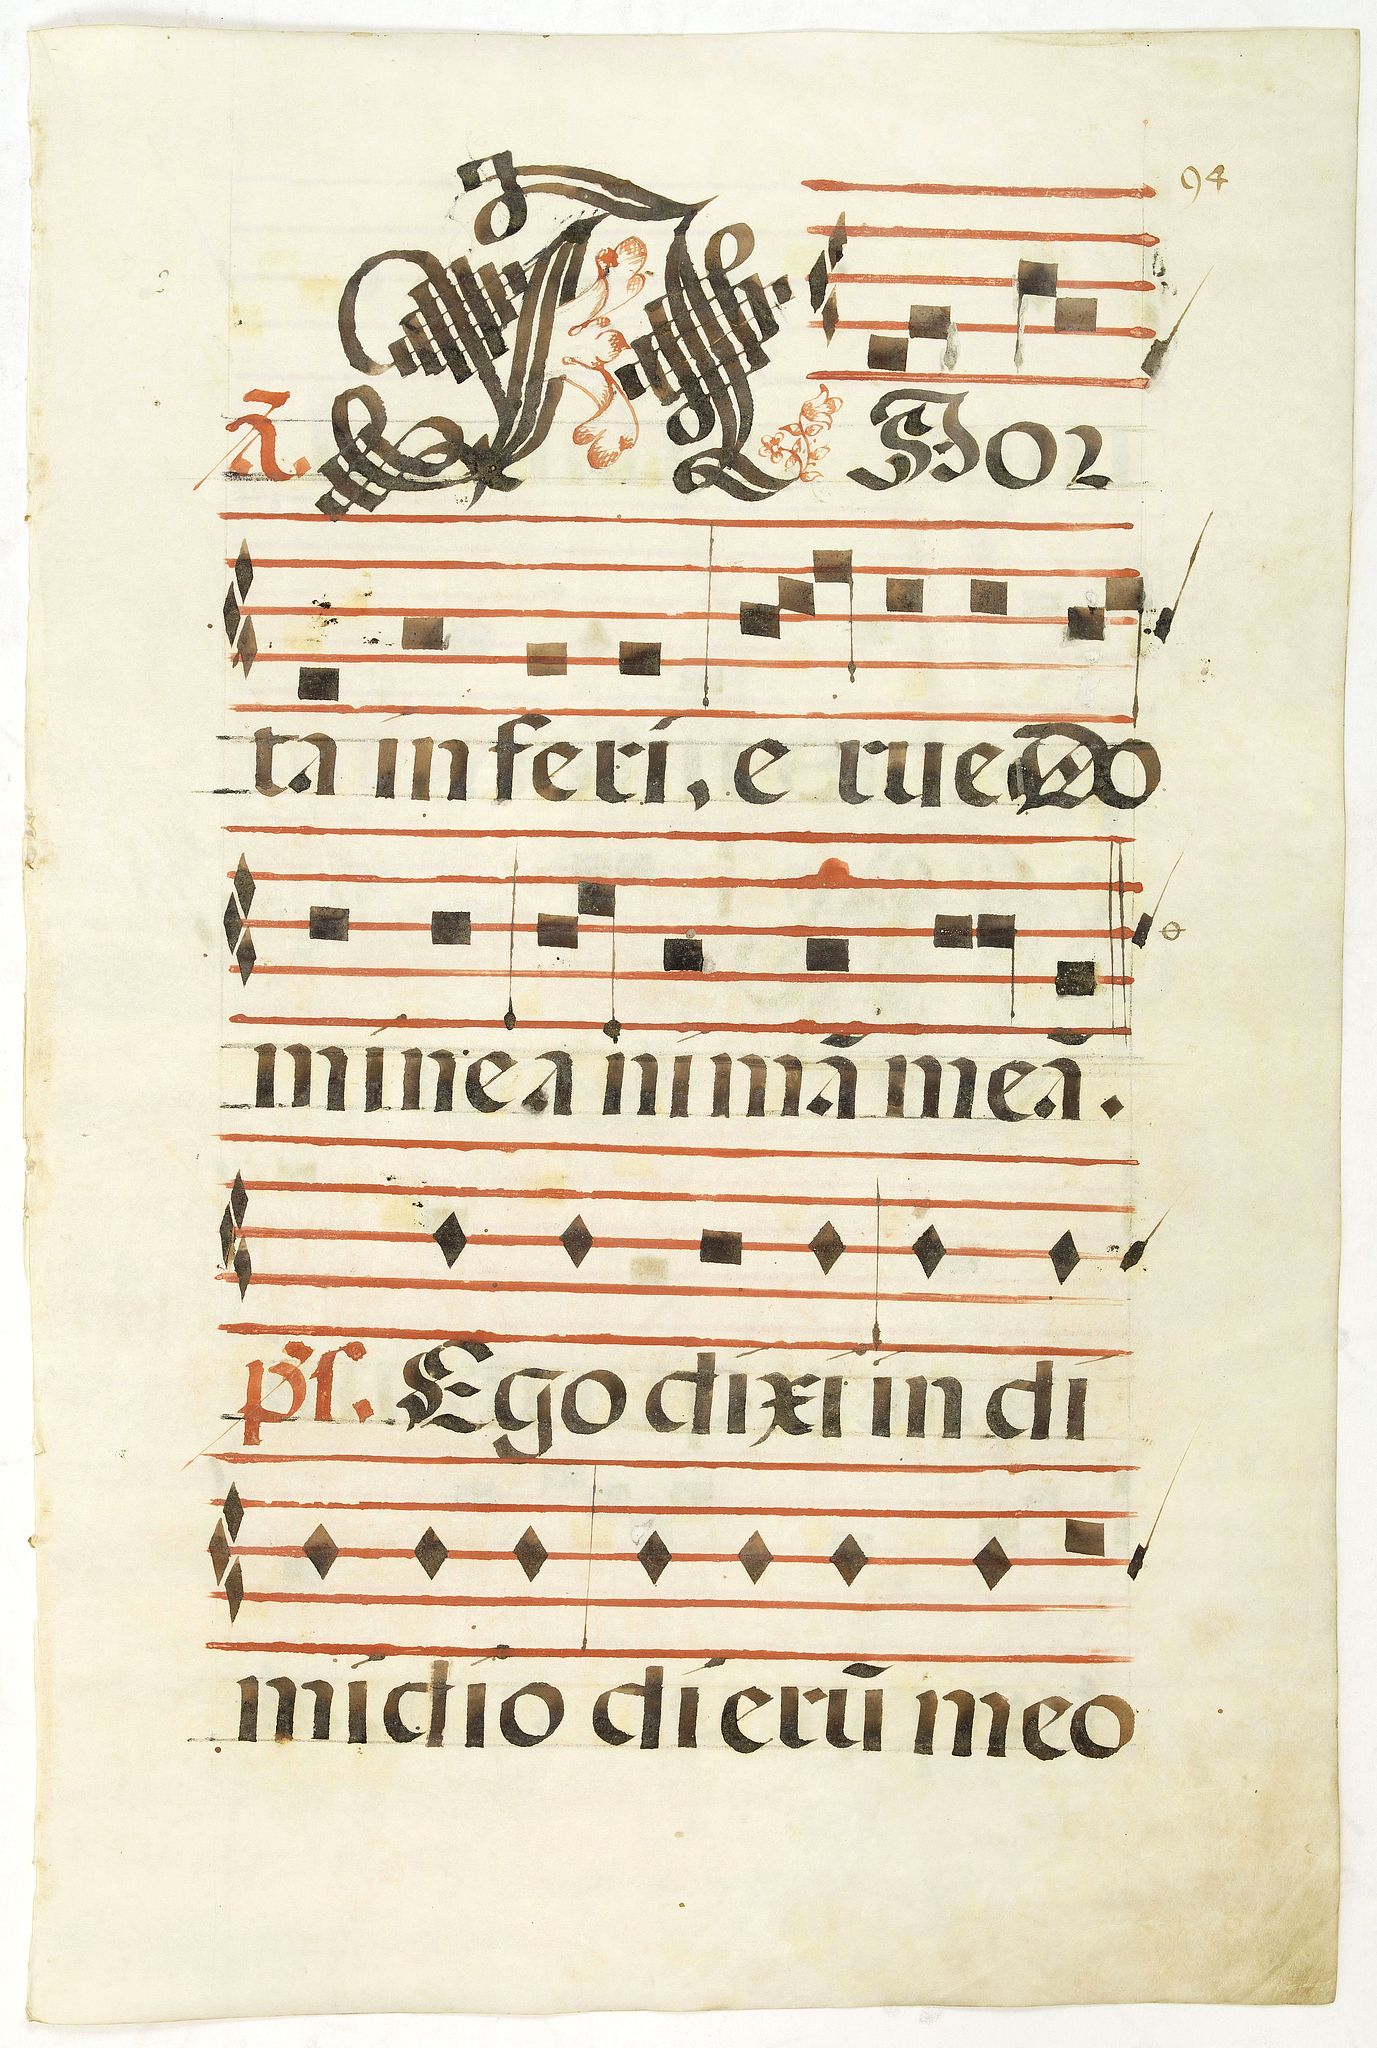 94
Ã. A Por
ta inferi, e rue Do
mine a nimã meã.
ps. Ego dixi in di
midio dierũ meo